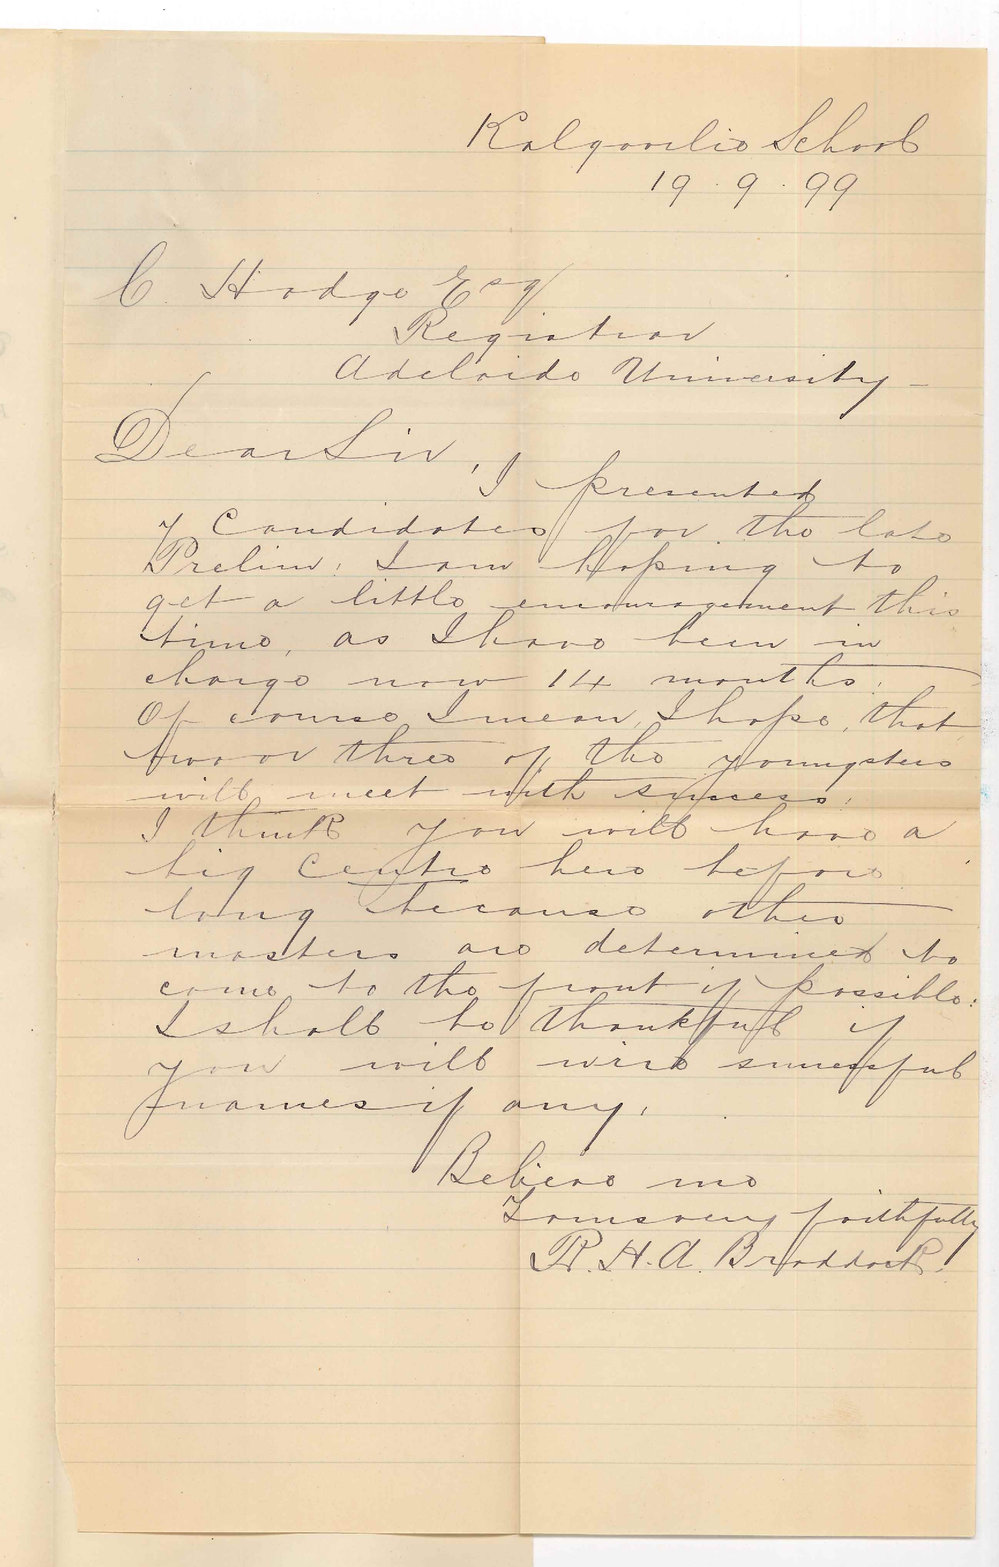 Kalgoorlie School
19 . 9 . 99
C. Hodge Esq
Registrar
Adelaide University -
Dear Sir,
I presented
7 Candidates for the late
Prelim: I am hoping to
get a little encouragement this
time, as I have been in
charge now 14 months.
Of course I mean, I hope, that
two or three of the youngsters
will meet with success.
I think you will have a
big Centre here before
long because other
masters are determined to
come to the front if possible:
I shall be thankful if
you will wire successful
names if any.
Believe me
Yours very faithfully
R. H. A. Braddock.